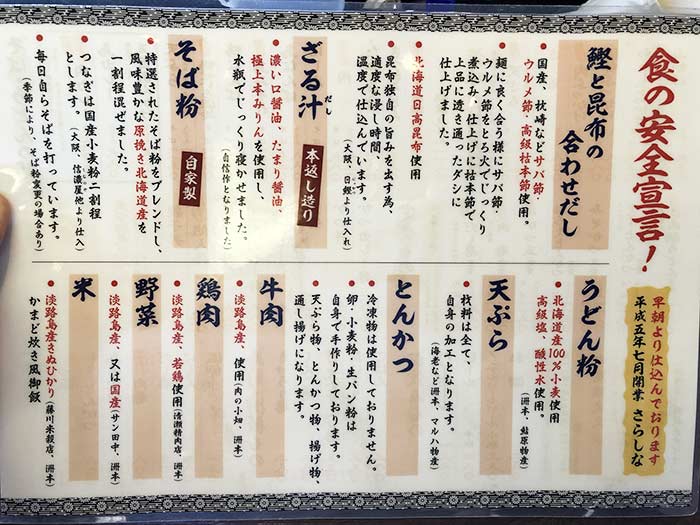 食の安全宣言!
早朝より仕込んでおります
平成五年七月開業 さらしな
鰹と昆布の
合わせだし
・国産、枕崎などサバ節・
ウルメ節・高級枯本節使用。
・麺に良く合う様にサバ節・
ウルメ節をとろ火でじっくり
煮込み、仕上げに枯本節で
上品に透き通ったダシに
仕上げました。
・北海道日高昆布使用
昆布独自の旨みを出す為、
適度な浸し時間、
温度で仕込んでいます。
(大阪、日鰹より仕入れ)
ざる汁
だし
本返し造り
・濃い口醤油、たまり醤油、
極上本みりんを使用し、
水瓶でじっくり寝かせました。
(自信作となりました)
そば粉
自家製
・特選されたそば粉をブレンドし、
風味豊かな原挽き北海道産を
一割程混ぜました。
・つなぎは国産小麦粉二割程
とします。(大阪、信濃屋他より仕入)
・毎日自らそばを打っています。
(季節により、そば粉変更の場合あり)
うどん粉
・北海道産100%小麦使用
高級塩、酸性水使用。
(洲本、鮎原物産)
天ぷら
・材料は全て、
自身の加工となります。
(海老など洲本、マルハ物産)
とんかつ
・冷凍物は使用しておりません。
・卵・小麦粉・生パン粉は
自身で手作りしております。
・天ぷら物、とんかつ物、揚げ物、
通し揚げになります。
牛肉
・淡路島産、使用(肉の小畑、洲本)
鶏肉
・淡路島産、若鶏使用(清瀬精肉店、洲本)
野菜
・淡路島産、又は国産(サン田中、洲本)
米
・淡路島産きぬひかり(藤川米穀店、洲本)
かまど炊き風御飯